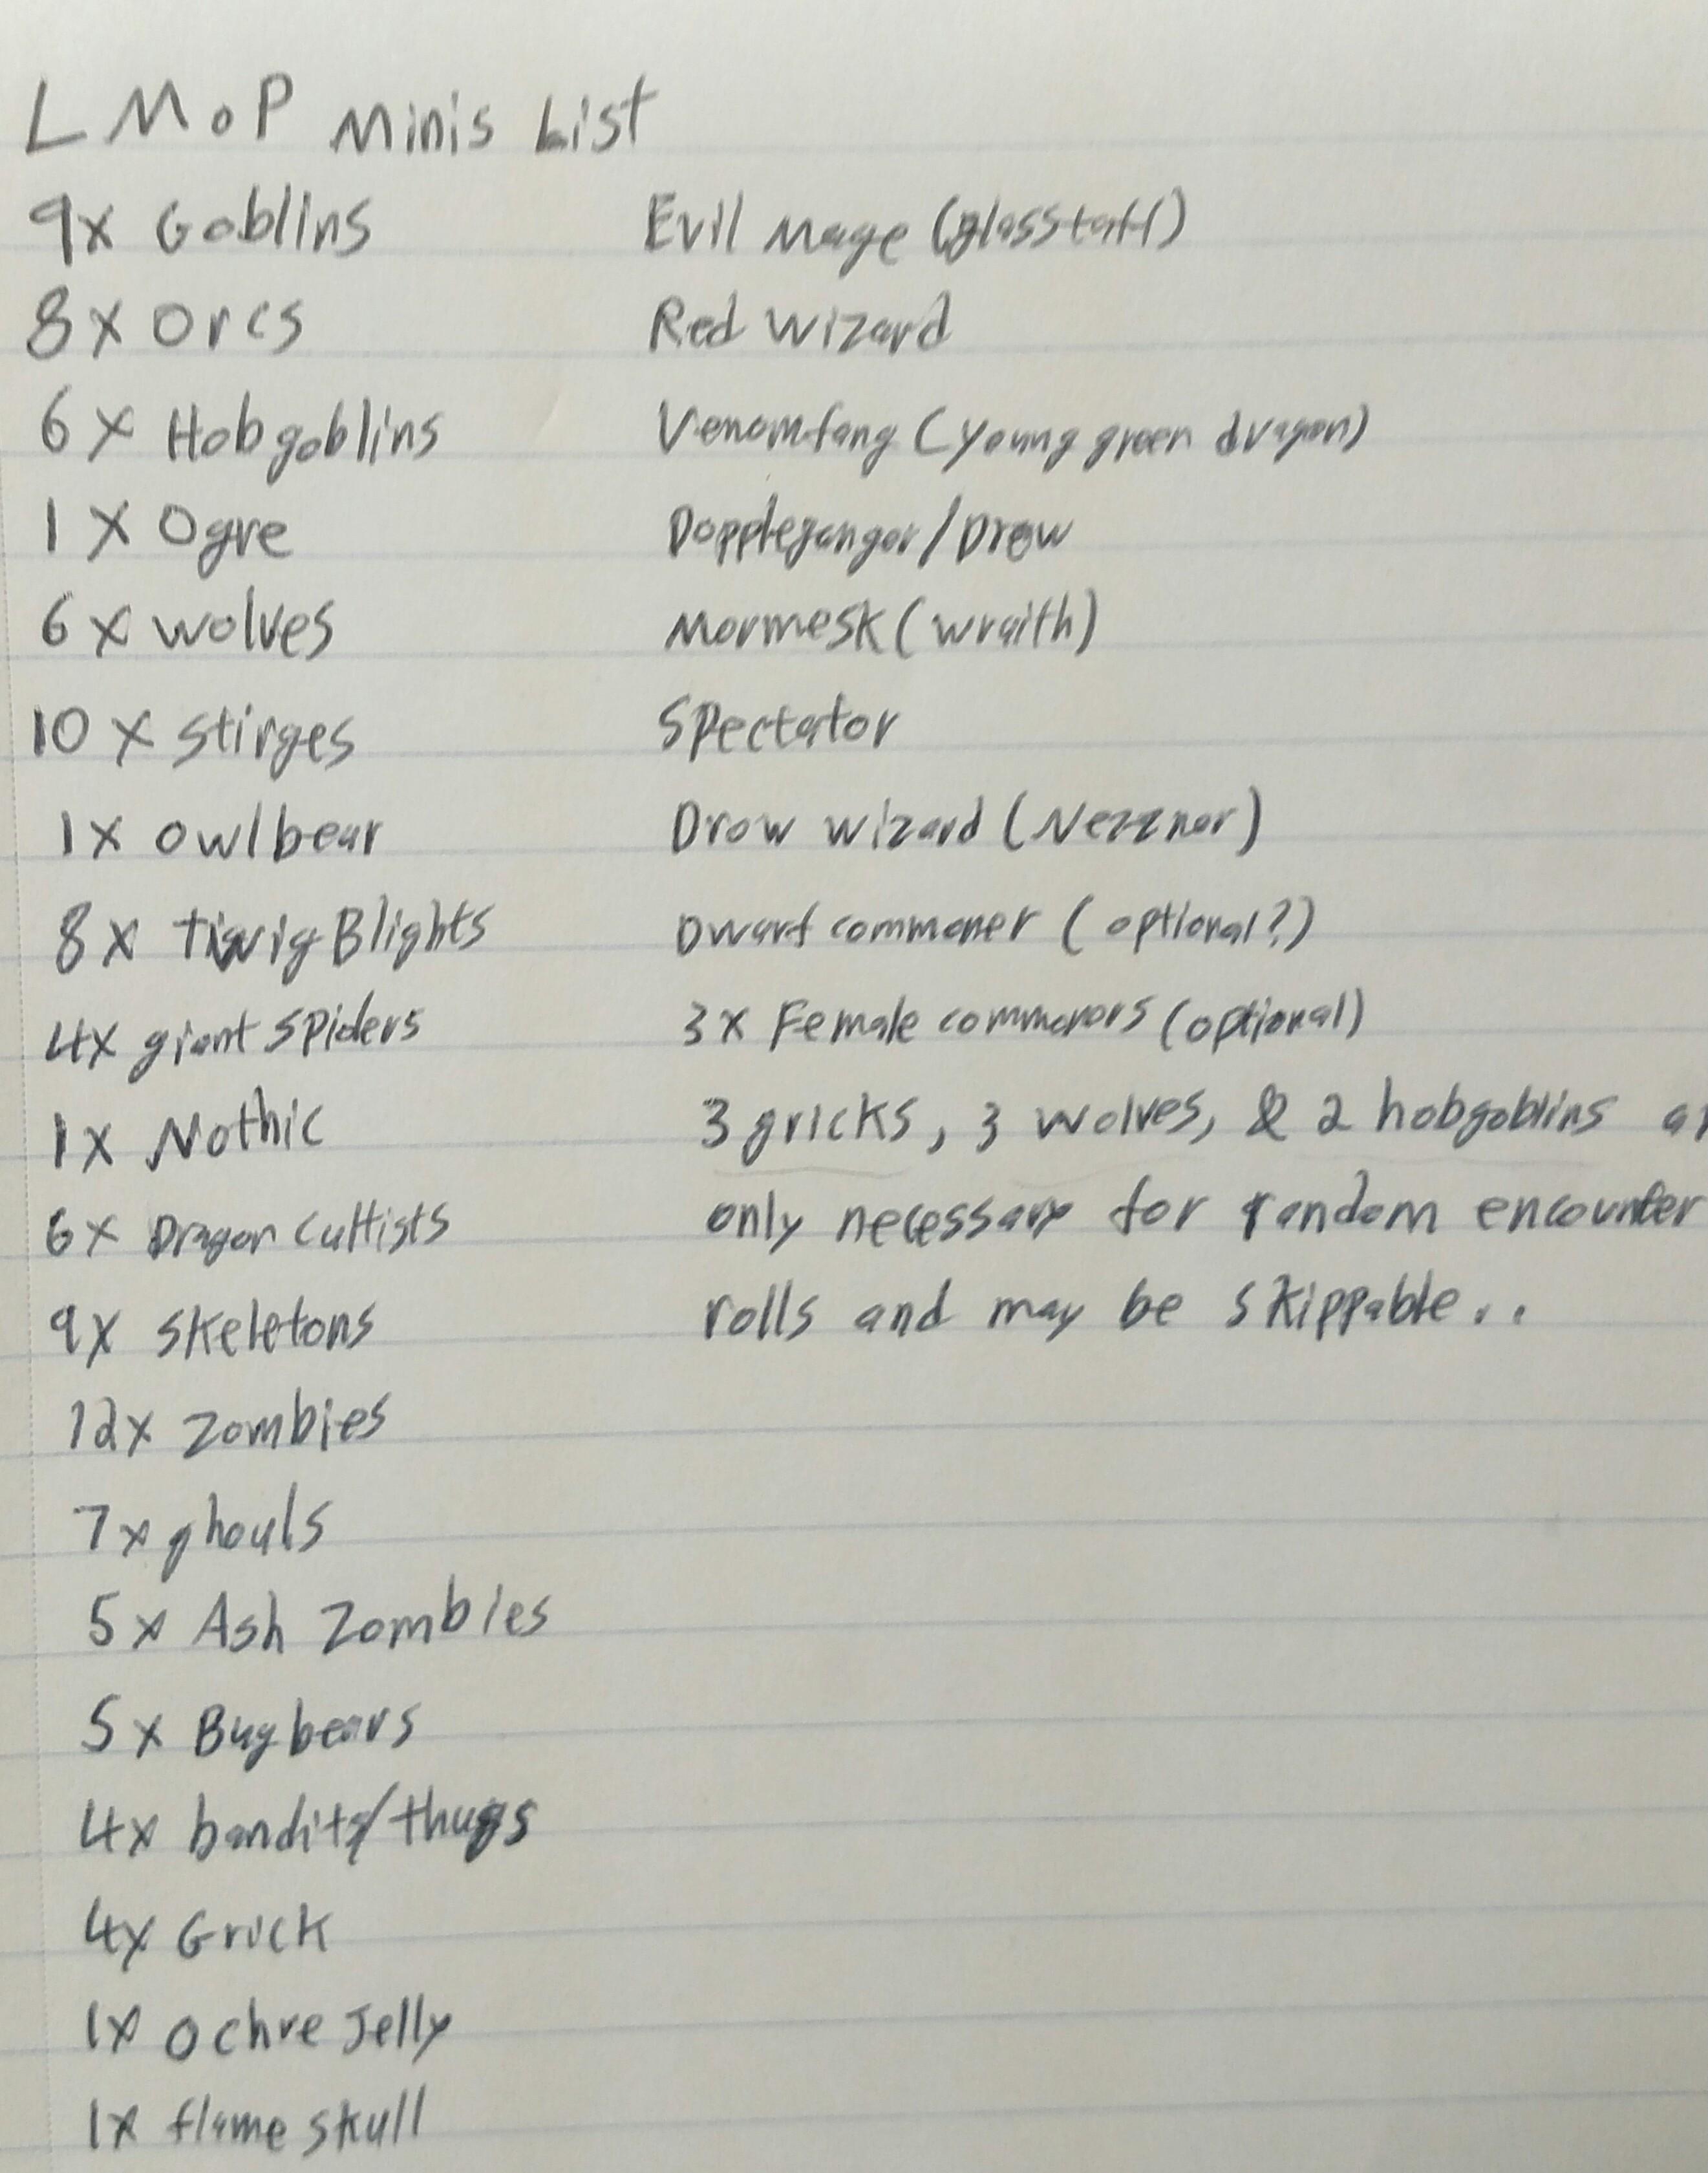 LMoP Minis List
9x Goblins
8x Orcs
6x Hobgoblins
1x Ogre
6x wolves
10x stirges
1x owlbear
8x Twig Blights
4x giant spiders
1x Nothic
6x Dragon Cultists
9x skeletons
12x zombies
7x ghouls
5x Ash Zombies
5x Bugbears
4x bandits/thugs
4x Grick
1x Ochre Jelly
1x flame skull
Evil Mage (glasstaff)
Red Wizard
Venomfang (young green dragon)
Doppleganger/Drow
Mormesk (wraith)
Spectator
Drow wizard (Nezznar)
Dwarf commoner (optional?)
3x Female commoners (optional)
3 gricks, 3 wolves, & 2 hobgoblins
only necessary for random encounter
rolls and may be skippable..